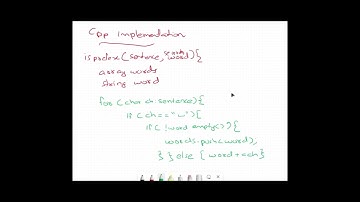 Cpp implementation
isprefix (sentence, search word) {
array words
string word
for (char ch: sentence) {
if (ch == " ") {
if (! word empty()) {
words.push(word),
} } else { word + = ch }